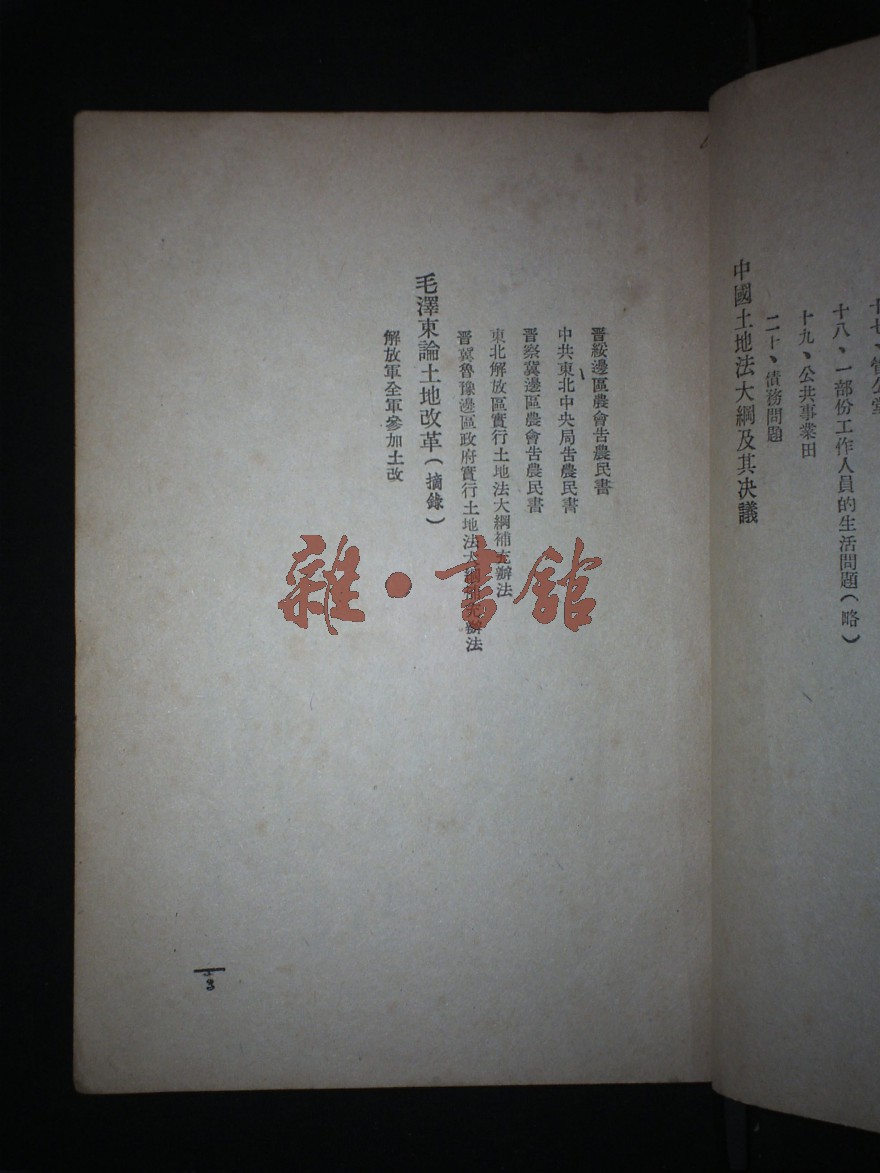 十七、管公堂
十八、一部份工作人員的生活問題(略)
十九、公共事業田
二十、債務問題
中國土地法大綱及其決議
晋綏邊區農會告農民書
中共東北中央局告農民書
晋察冀邊區農會告農民書
東北解放區實行土地法大綱補充辦法
晋冀魯豫邊區政府實行土地法大綱補充辦法
毛澤東論土地改革(摘錄)
解放軍全軍參加土改
雜·書館
3